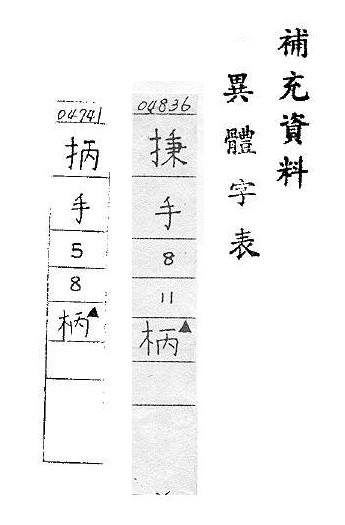 補充資料
異體字表
04836
𢮏
手
8
11
柄▲
04741
抦
手
5
8
柄▲